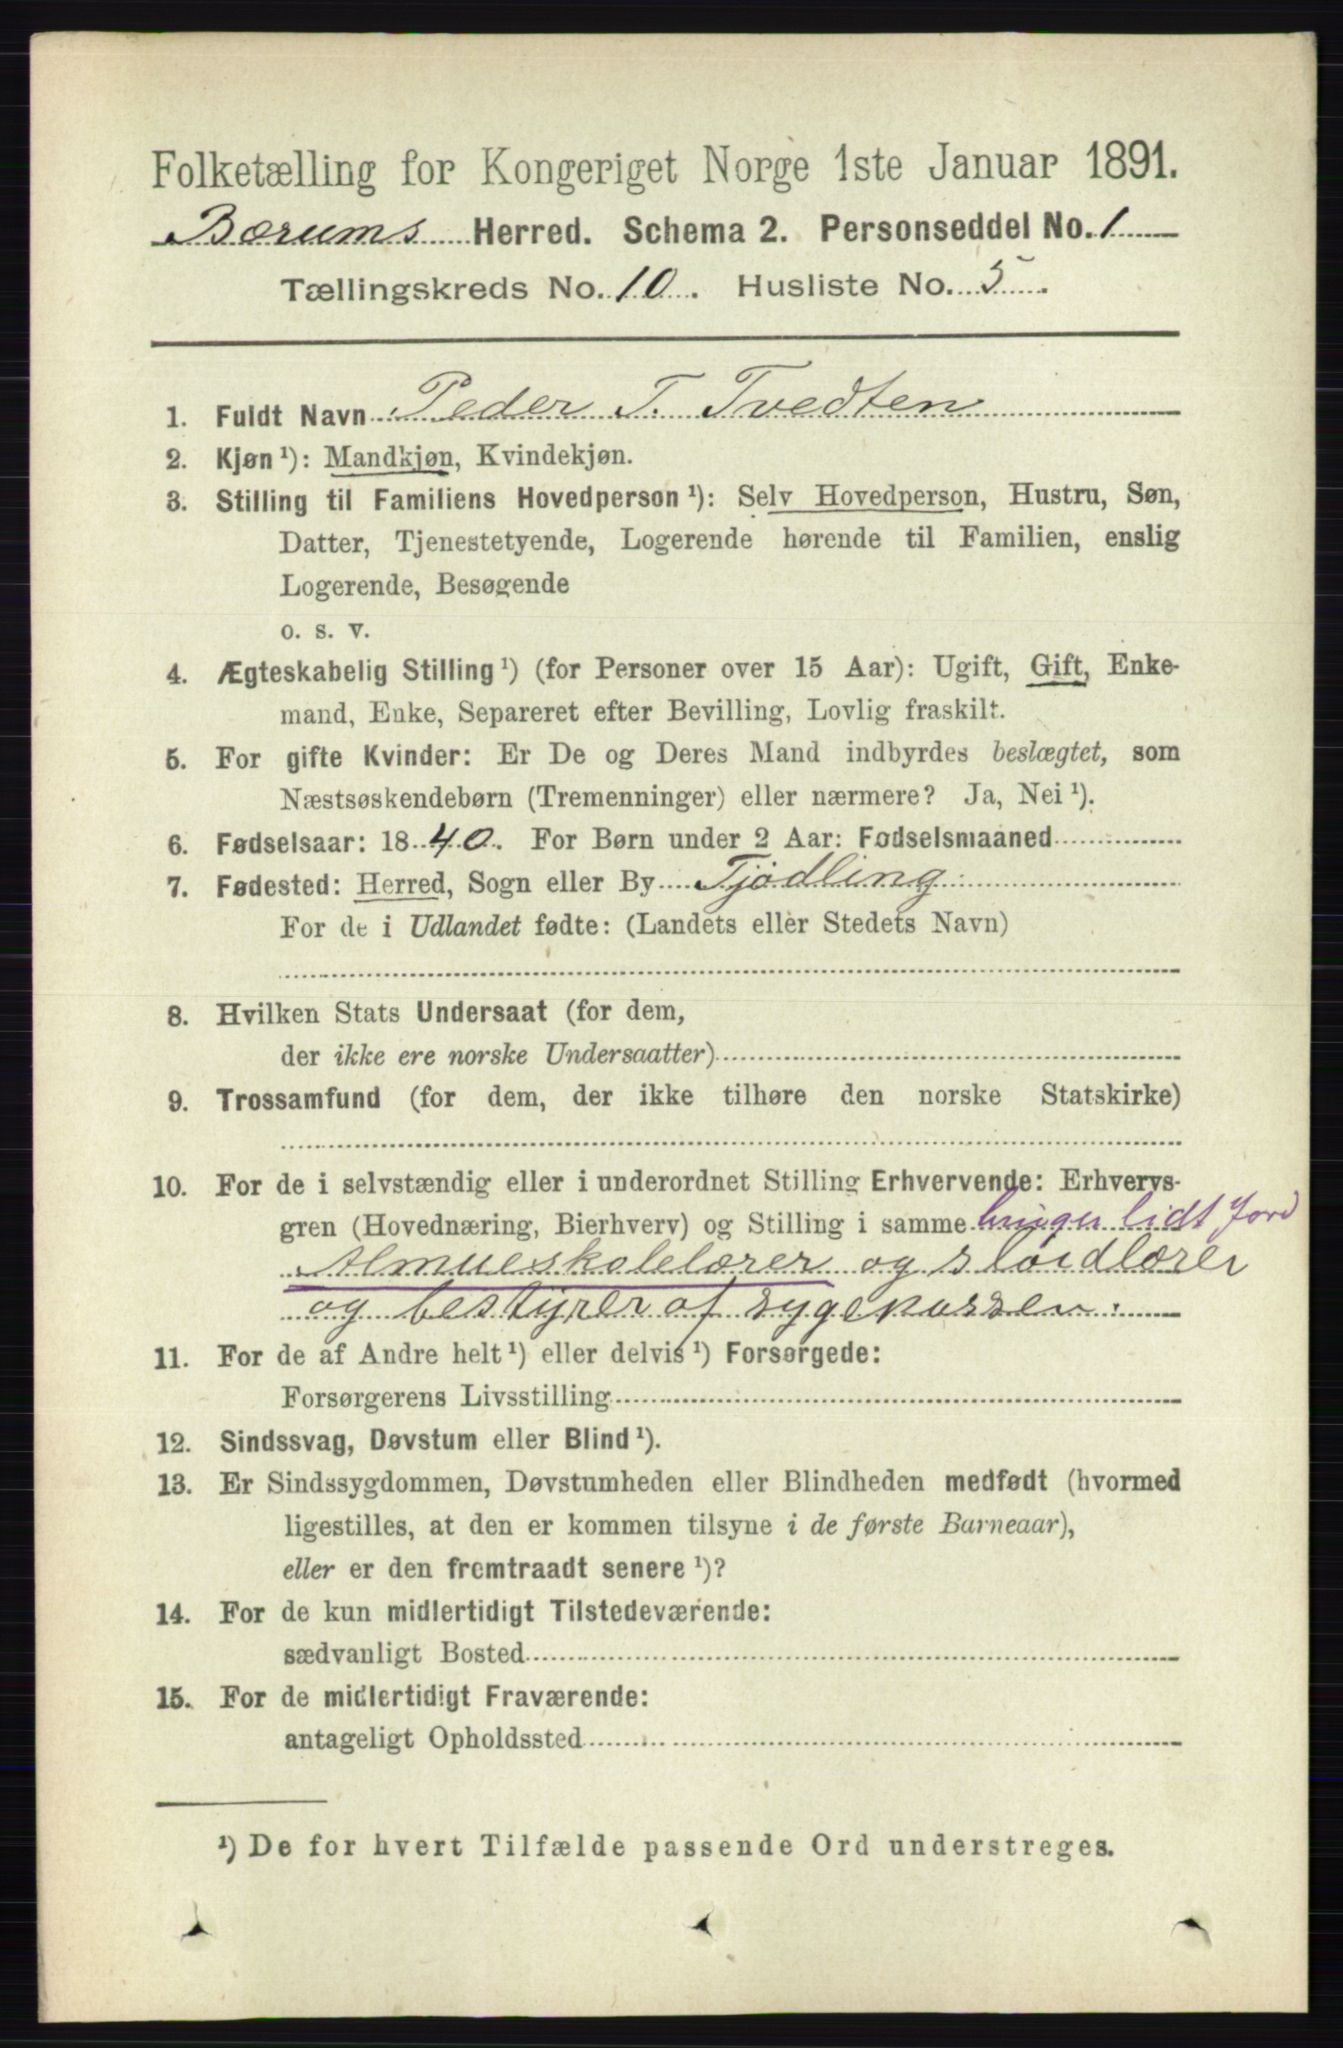 Folketælling for Kongeriget Norge 1ste Januar 1891.
Bærums Herred. Schema 2. Personseddel No. 1
Tællingskreds No. 10. Husliste No. 5.
1. Fuldt Navn Peder T. Tvedten
2. Kjøn ¹): Mandkjøn, Kvindekjøn.
3. Stilling til Familiens Hovedperson ¹): Selv Hovedperson, Hustru, Søn,
Datter, Tjenestetyende, Logerende hørende til Familien, enslig
Logerende, Besøgende
o. s. v.
4. Ægteskabelig Stilling ¹) (for Personer over 15 Aar): Ugift, Gift, Enke-
mand, Enke, Separeret efter Bevilling, Lovlig fraskilt.
5. For gifte Kvinder: Er De og Deres Mand indbyrdes beslægtet, som
Næstsøskendebørn (Tremenninger) eller nærmere? Ja, Nei ¹).
6. Fødselsaar: 1840. For Børn under 2 Aar: Fødselsmaaned
7. Fødested: Herred, Sogn eller By Tjødling
For de i Udlandet fødte: (Landets eller Stedets Navn)
8. Hvilken Stats Undersaat (for dem,
der ikke ere norske Undersaatter)
9. Trossamfund (for dem, der ikke tilhøre den norske Statskirke)
10. For de i selvstændig eller i underordnet Stilling Erhvervende: Erhvervs-
gren (Hovednæring, Bierhverv) og Stilling i samme bruger lidt jord
Almueskolelærer og sløidlærer
og bestyrer af sygekassen.
11. For de af Andre helt ¹) eller delvis ¹) Forsørgede:
Forsørgerens Livsstilling
12. Sindssvag, Døvstum eller Blind ¹).
13. Er Sindssygdommen, Døvstumheden eller Blindheden medfødt (hvormed
ligestilles, at den er kommen tilsyne i de første Barneaar),
eller er den fremtraadt senere ¹)?
14. For de kun midlertidigt Tilstedeværende:
sædvanligt Bosted
15. For de midlertidigt Fraværende:
antageligt Opholdssted
¹) De for hvert Tilfælde passende Ord understreges.